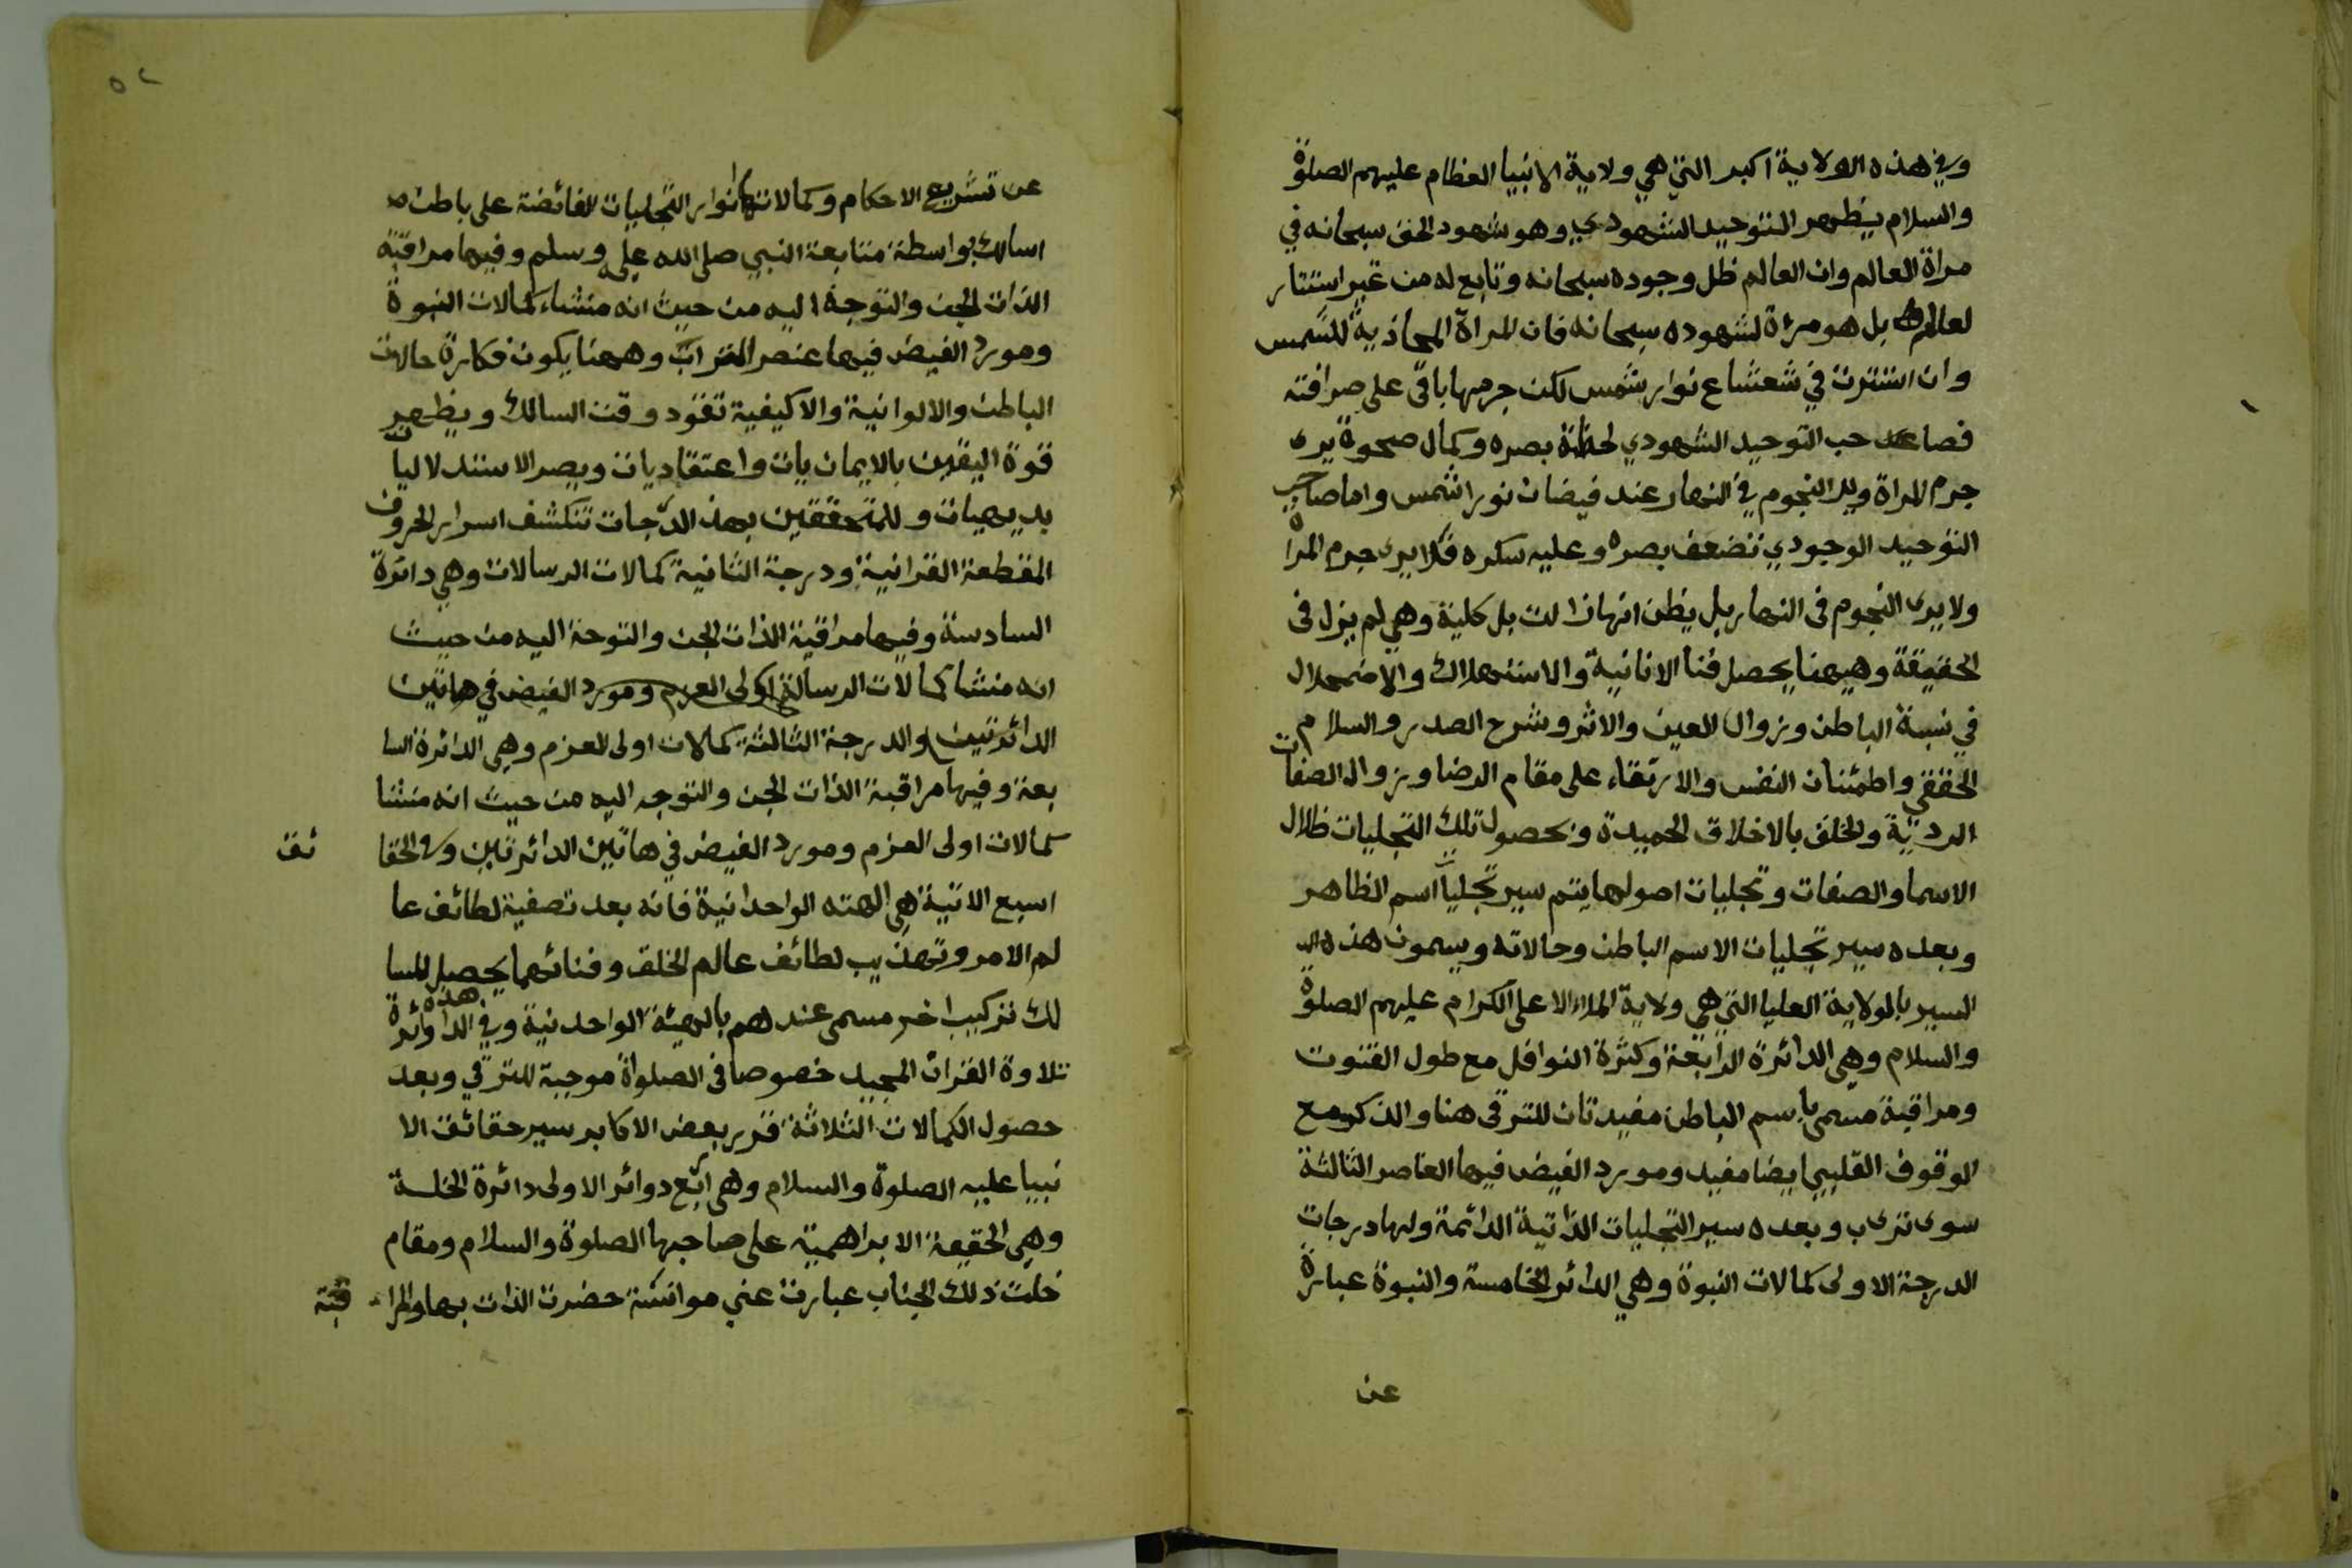 وفي هذه الولاية اكبر التي هي ولاية الانبيا العظام عليهم الصلوة
والسلام يظهر التوحيد الشهودي وهو شهود الحق سبحانه في
مراة العالم وان العالم ظل وجوده سبحانه وتابع له من غير استتار
لعالم بل هو مرءة لشهوده سبحانه فان المراة المحاذية للشمس
وان استترت في شعشاع نوار شمس لكن جرمها باقي على صرافته
فصاحب التوحيد الشهودي لحدة بصره وكمال صحوة يرى
جرم المراة ويرا النجوم في النهار عند فيضان نورا شمس واما صاحب
التوحيد الوجودي تضعف بصره وعليه سكره فلا يرى جرم المراة
ولا يرى النجوم فى النهار بل يظن انها زالت بل كلية وهي لم يزل فى
الحقيقة وهيهنا يحصل فنا الانانية والاستهلاك والاضمحلال
في نسبة الباطن وزوال العين والاثر وشرح الصدر والسلام
الحققي واطمئنان النفس والارتقاء على مقام الرضا وزوال الصفات
الردية والخلق بالاخلاق الحميدة وبحصول تلك التجليات ظلال
الاسما والصفات وتجليات اصولها يتم سير تجليات اسم الظاهر
وبعده سير تجليات الاسم الباطن وحالاته ويسمون هذه ال
السير بالولاية العليا التي هي ولاية الملاء الاعلى الكرام عليهم الصلوة
والسلام وهي الدائرة الرابعة وكثرة النوافل مع طول القنوت
ومراقبة مسمى باسم الباطن مفيدتان للترقى هنا والذكر مع
الوقوف القلبي ايضا مفيد ومورد الفيض فيها العناصر الثالثة
سوى تراب وبعده سير التجليات الذاتية الدائمة ولها درجات
الدرجة الاولى كمالات النبوة وهي الدائر الخامسة والنبوة عبارة
عن
٥٢
عن تشريع الاحكام وكمالاتها انوار التجليات الفائضة على باطن
اسالك بواسطة متابعة النبي صلى الله عليه وسلم وفيها مراقبة
الذات البحت والتوجه اليه من حيث انه منشاء كمالات النبوة
ومورد الفيض فيها عنصر التراب وههنا يكون فكارة حالات
الباطن والالوانية والاكيفية تقود وقت السالك ويظهر
قوة اليقين بالايمان يات واعتقاديات ويصر الاستدلاليات
بديهيات وللمتحققين بهذ الدرجات تنكشف اسرار الحروف
المقطعة القرانية ودرجة الثانية كمالات الرسالات وهي دائرة
السادسة وفيها مراقبة الذات البحت والتوجة اليه من حيث
انه منشا كمالات الرسالة اولى العزم ومورد الفيض في هاتين
الدائرتين والدرجة الثالثة كمالات اولى العزم وهي الدائرة السا
بعة وفيها مراقبة الذات البحت والتوجه اليه من حيث انه منشا
كمالات اولى العزم ومورد الفيض في هاتين الدائرتين وفي الحقا ئق
اسبع الاتية هي الهته الواحدانية فانه بعد تصفية لطائف عا
لم الامر وتهذيب لطائف عالم الخلق وفنائهما يحصل للسا
لك تركيب اخر مسمى عندهم بالهيئة الواحدنية وفي هذه الدوائرة
تلاوة القران المجيد خصوصا فى الصلواة موجبة للترقي وبعد
حصول الكمالات الثلاثة قرر بعض الاكابر سير حقائق الا
نبيا عليه الصلوة والسلام وهي اربع دوائر الاولى دائرة الخلسة
وهي الحقيعة الابراهمية على صاحبها الصلوة والسلام ومقام
خلت ذلك الجناب عبارت عني موانسة حضرت الذات بها والمرا قبة